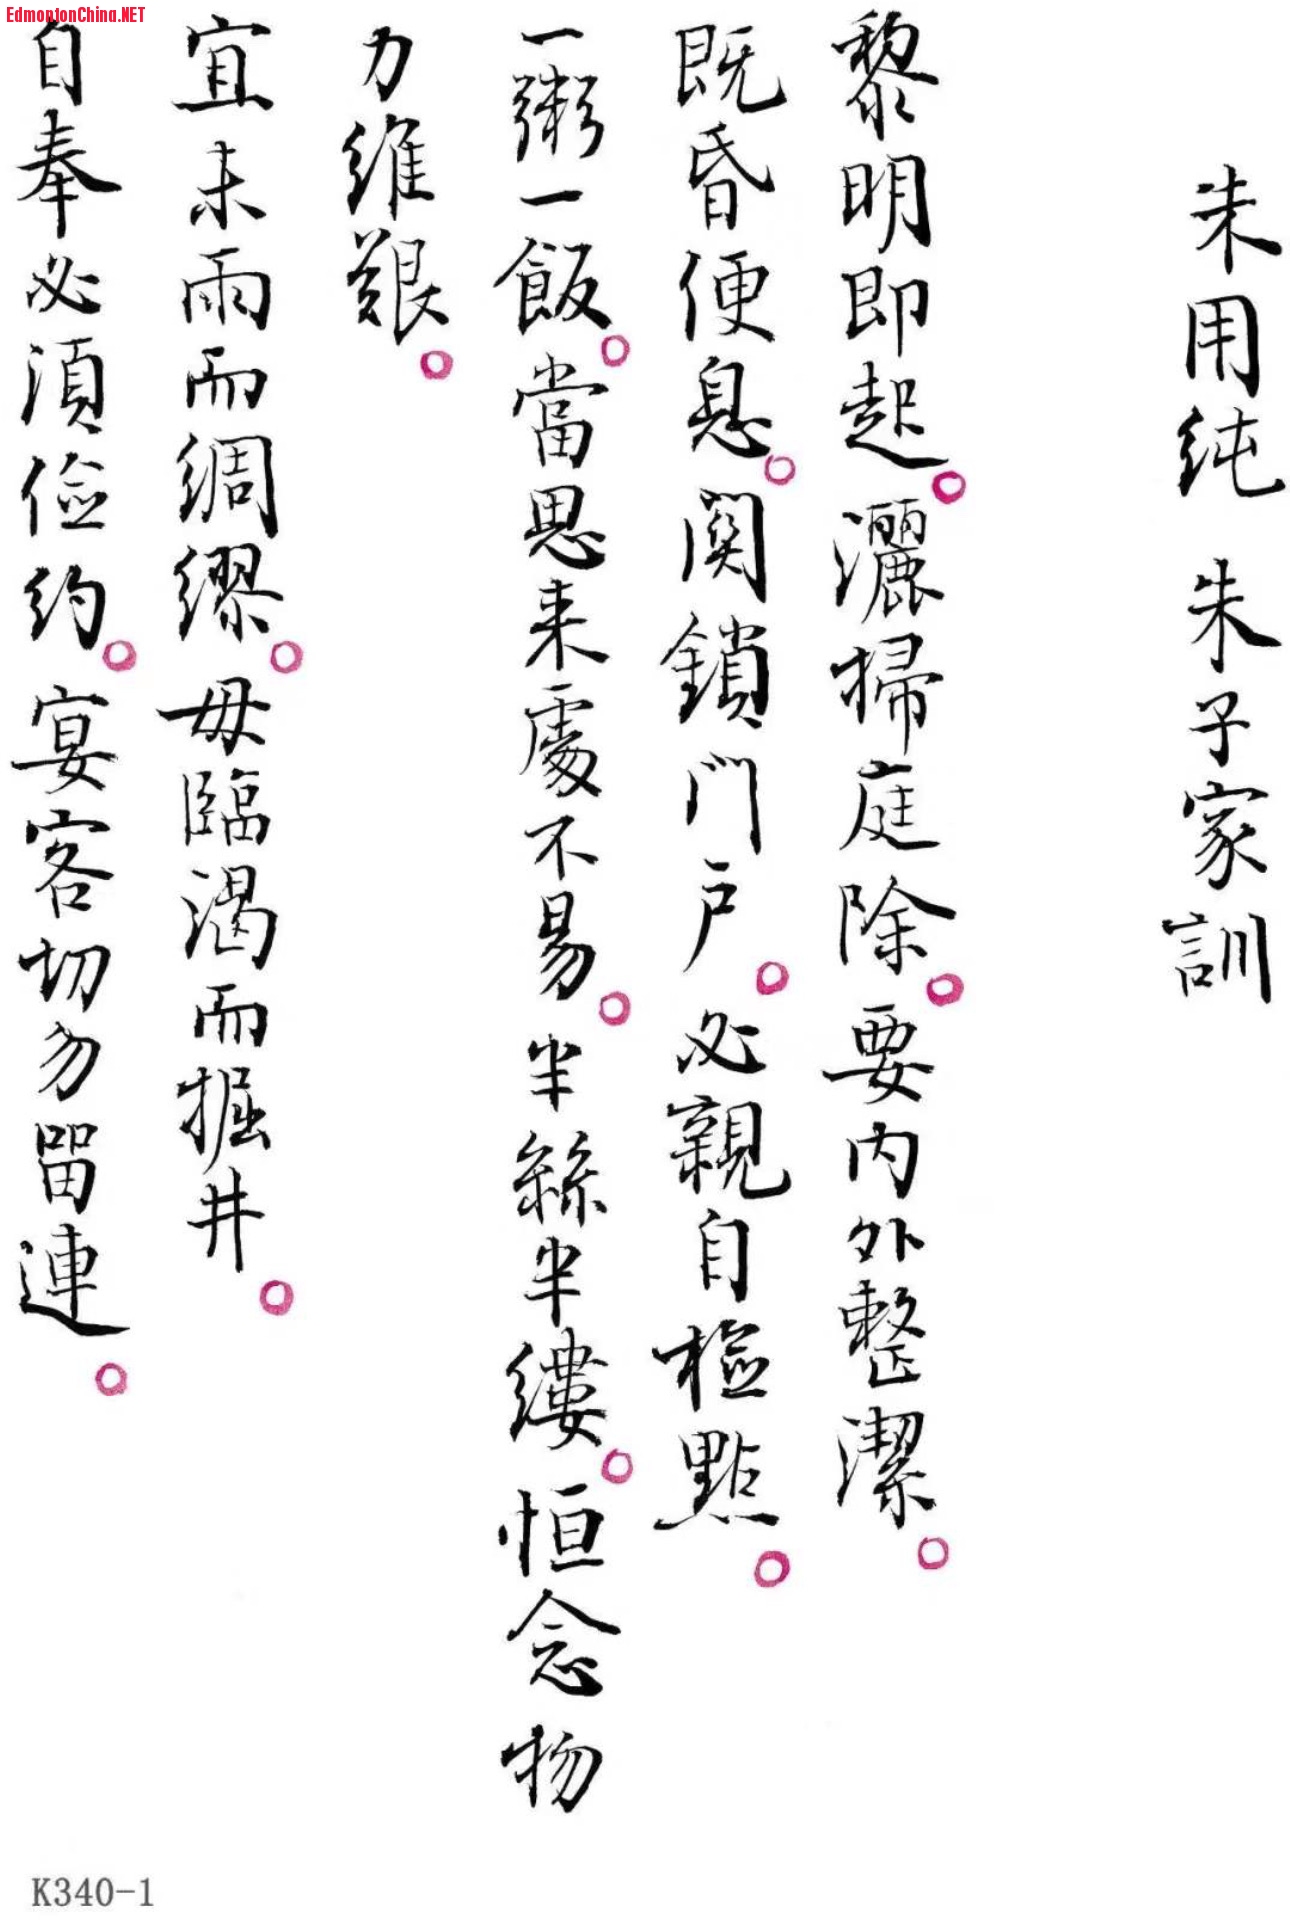 EdmontonChina.NET
朱用纯 朱子家訓
黎明即起。灑掃庭除。要内外整潔。
既昏便息。関鎖門户。必親自檢點。
一粥一飯。當思来處不易。半絲半縷。恒念物
力維艱。
宜未雨而綢繆。毋臨渴而掘井。
自奉必須儉約。宴客切勿留連。
K340-1